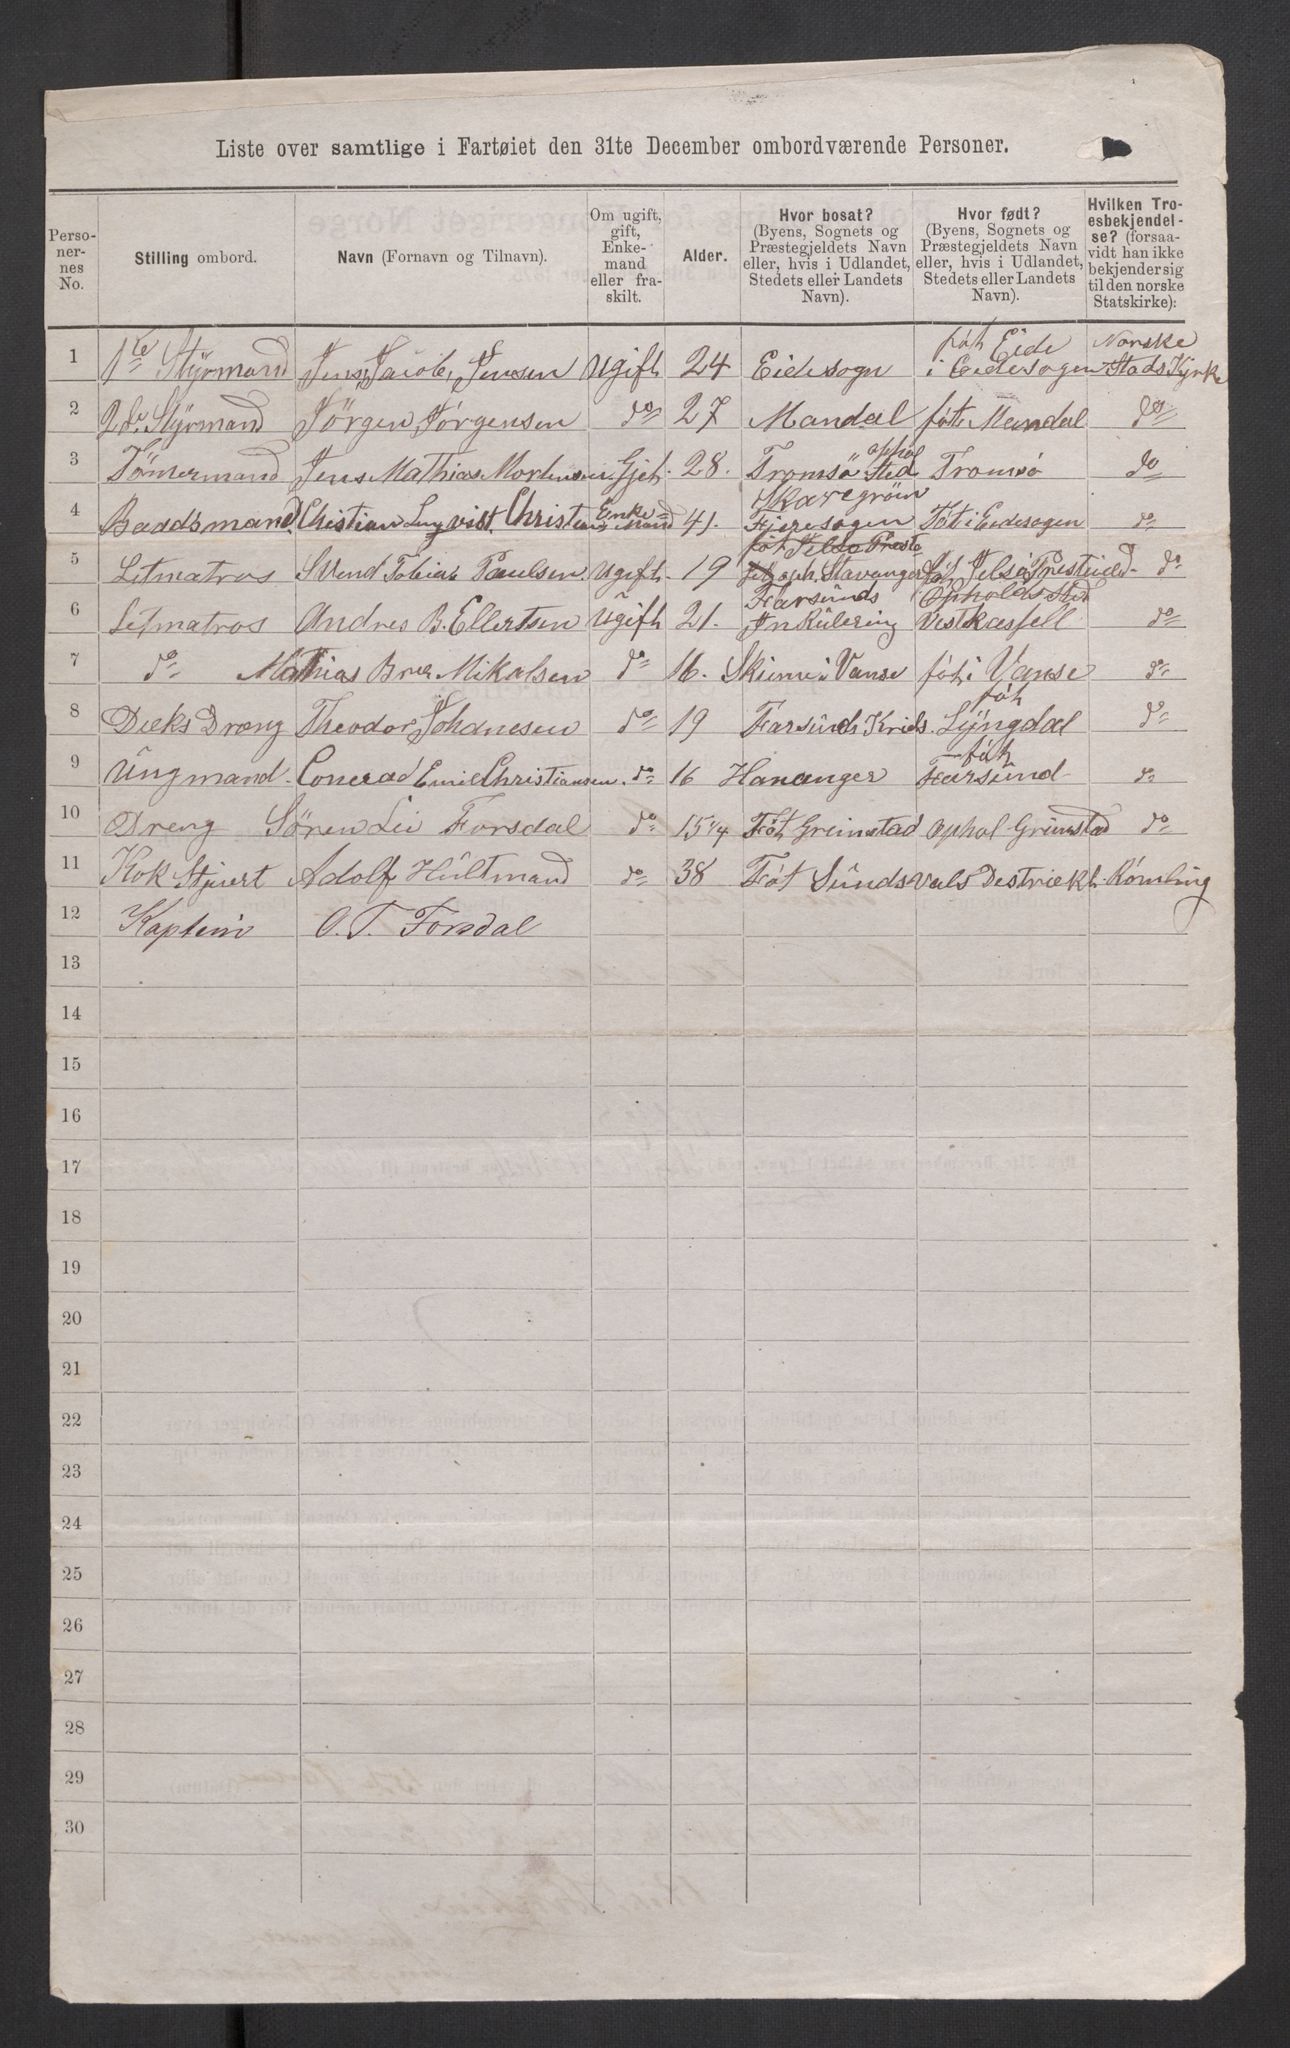 Liste over samtlige i Fartøiet den 31te December ombordværende Personer.
Personernes No. | Stilling ombord. | Navn (Fornavn og Tilnavn). | Om ugift, gift, Enkemand eller fraskilt. | Alder. | Hvor bosat? (Byens, Sognets og Præstegjeldets Navn eller, hvis i Udlandet, Stedets eller Landets Navn). | Hvor født? (Byens, Sognets og Præstegjeldets Navn eller, hvis i Udlandet, Stedets eller Landets Navn). | Hvilken Troesbekjendelse? (forsaavidt han ikke bekjender sig til den norske Statskirke):
1 | 1te Stÿrmand | Jens Jacob Jensen | Ugift | 24 | Eidesogn | føt Eide i Eidesogen | Norske Stads Kyrke
2 | 2de Stÿrmand | Jörgen Jörgensen | do | 27 | Mandal | føt Mandal | do
3 | Tömmermand | Jens Mathias Mortensen | Gjet | 28. | Tromsö ophol Sted | Tromsø | do
4 | Baadsmand. | Chistian Lunqvist Christensen | Enkemand | 41. | Skaregrön Fjeresogen | Föt i Eidesogen | do
5 | Letmatros | Svend Tobias Paulsen. | Ugift | 19 | oph. Stavanger | föt Jelsø | do
6 | Letmatros | Andres B. Ellertsen | Ugift | 21. | Farsunds Inrulering | Opholds Sted Vestkassfell | do
7 | do | Mathias Brer Mikalsen | do | 16. | Skiime i Vanse | føt i Vanse | do
8 | Deeks Dreng | Theodor Johanesen | do | 19 | Farsünds Krids. | føt Lÿngdal | do
9 | Ungmand. | Conerad Emil Christiansen. | do | 16 | Hananger | føt Farsund | do
10 | Dreng | Sören Lii Forsdal | do | 15 1/4 | Föt Greimstad | Ophol Grimstad | do
11 | Kok Stjuert | Adolf Hültmand | do | 38 | Föt Sündsvals Destriekt | Römling
12 | Kaptein | O. T. Forsdal
13
14
15
16
17
18
19
20
21
22
23
24
25
26
27
28
29
30